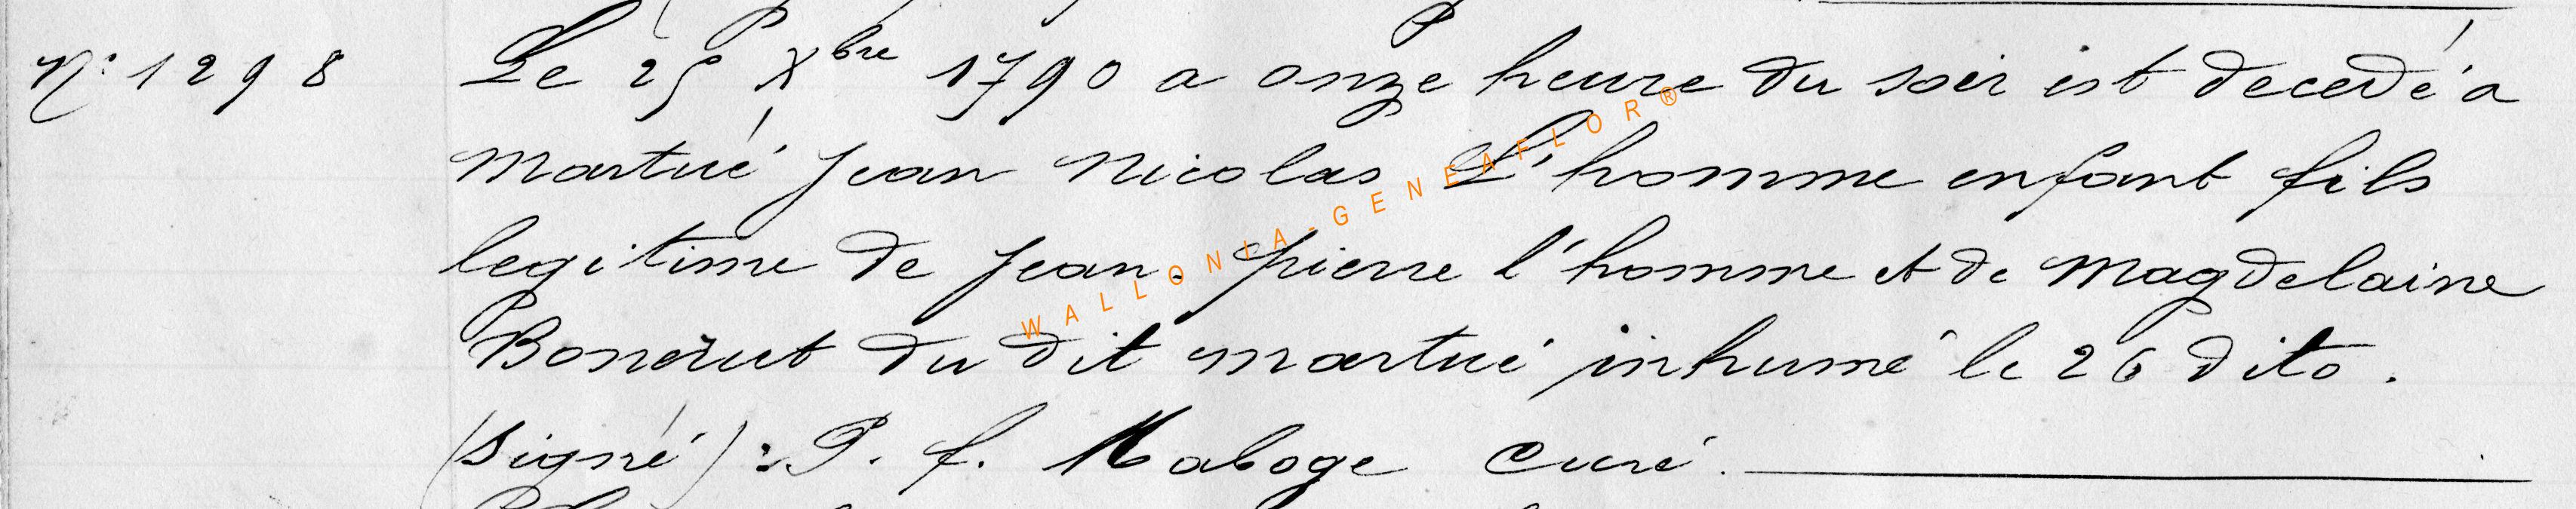 N° 1298 Le 25 Xbre 1790 a onze heure du soir est decedé a
Martué Jean Nicolas L'homme enfant fils
legitime de Jean-pierre l'homme et de Magdelaine
du dit martué inhumé le 26 dito.
(signé) : P. f. Maboge Curé.
WALLONIA-GENEAFLOR®